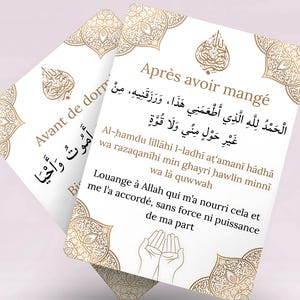 Après avoir mangé
الْحَمْدُ لِلَّهِ الَّذِي أَطْعَمَنِي هَذَا، وَرَزَقَنِيهِ، مِنْ
غَيْرِ حَوْلٍ مِنِّي وَلَا قُوَّةٍ
Al-ḥamdu lillâhi l-ladhî aṭ'amanî hâdhâ
wa razaqanîhi min ghayri ḥawlin minnî
wa lâ quwwah
Louange à Allah qui m'a nourri cela et
me l'a accordé, sans force ni puissance
de ma part
Avant de dorm
أَمُوتُ وَأَحْيَا